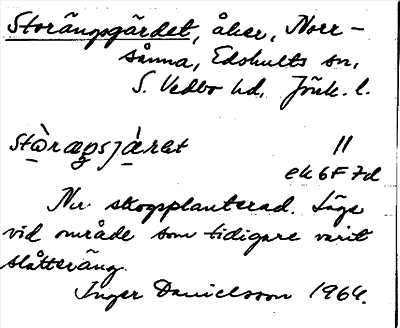 Storängsgärdet, åker, Norr-
sånna, Edshults sn,
S. Vedbo hd, Jönk. l.
stòræŋsjæ̀ret 11
ek 6F 7d
Nu skogsplanterad. Läge
vid område som tidigare varit
slåtteräng.
Inger Danielsson 1964.